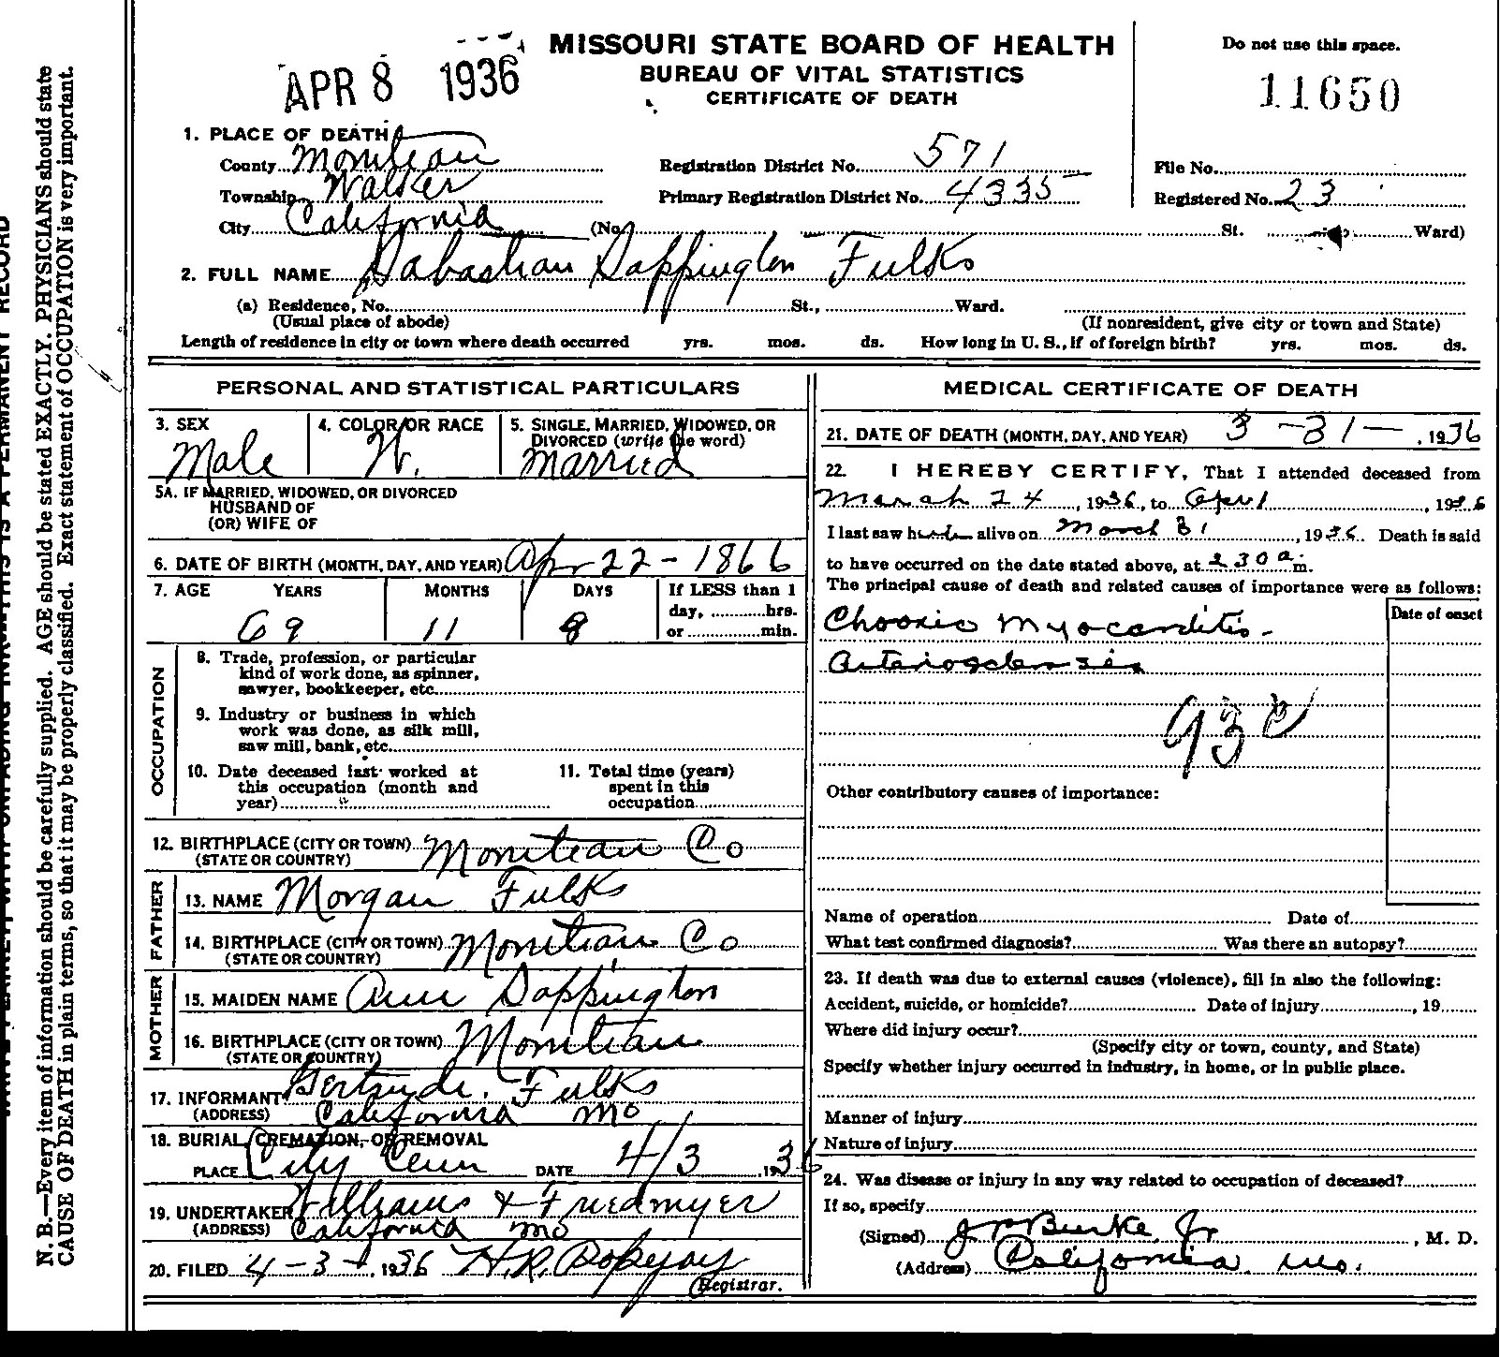 MISSOURI STATE BOARD OF HEALTH
BUREAU OF VITAL STATISTICS
CERTIFICATE OF DEATH
APR 8 1936
Do not use this space.
11650
1. PLACE OF DEATH
County Moniteau
Registration District No. 571
File No.
Township Walker
Primary Registration District No. 4335
Registered No. 23
City California (No. St. Ward)
2. FULL NAME Sabastian Sappington Fulks
(a) Residence, No. St., Ward.
(Usual place of abode)
(If nonresident, give city or town and State)
Length of residence in city or town where death occurred yrs. mos. ds. How long in U. S., if of foreign birth? yrs. mos. ds.
PERSONAL AND STATISTICAL PARTICULARS
3. SEX
Male
4. COLOR OR RACE
W.
5. SINGLE, MARRIED, WIDOWED, OR
DIVORCED (write the word)
Married
5A. IF MARRIED, WIDOWED, OR DIVORCED
HUSBAND OF
(OR) WIFE OF
6. DATE OF BIRTH (MONTH, DAY, AND YEAR) Apr 22-1866
7. AGE YEARS MONTHS DAYS If LESS than 1
day, hrs.
or min.
69 11 8
OCCUPATION
8. Trade, profession, or particular
kind of work done, as spinner,
sawyer, bookkeeper, etc.
9. Industry or business in which
work was done, as silk mill,
saw mill, bank, etc.
10. Date deceased last worked at
this occupation (month and
year)
11. Total time (years)
spent in this
occupation
12. BIRTHPLACE (CITY OR TOWN) Moniteau Co
(STATE OR COUNTRY)
FATHER
13. NAME Morgan Fulks
14. BIRTHPLACE (CITY OR TOWN) Moniteau Co
(STATE OR COUNTRY)
MOTHER
15. MAIDEN NAME Ann Sappington
16. BIRTHPLACE (CITY OR TOWN) Moniteau
(STATE OR COUNTRY)
17. INFORMANT Gertrude Fulks
(ADDRESS) California Mo
18. BURIAL, CREMATION, OR REMOVAL
PLACE City Cem DATE 4/3 1936
19. UNDERTAKER Williams & Friedmyer
(ADDRESS) California Mo
20. FILED 4-3-, 1936 H.R. Popejoy
(Registrar.
MEDICAL CERTIFICATE OF DEATH
21. DATE OF DEATH (MONTH, DAY, AND YEAR) 3-31-, 1936
22. I HEREBY CERTIFY, That I attended deceased from
March 24, 1936, to Apr 1, 1936
I last saw him alive on March 31, 1936. Death is said
to have occurred on the date stated above, at 230 a m.
The principal cause of death and related causes of importance were as follows:
Date of onset
Chronic Myocarditis.
Arteriosclerosis
93c
Other contributory causes of importance:
Name of operation Date of
What test confirmed diagnosis? Was there an autopsy?
23. If death was due to external causes (violence), fill in also the following:
Accident, suicide, or homicide? Date of injury, 19
Where did injury occur?
(Specify city or town, county, and State)
Specify whether injury occurred in industry, in home, or in public place.
Manner of injury
Nature of injury
24. Was disease or injury in any way related to occupation of deceased?
If so, specify
(Signed) J P Burke Jr, M. D.
(Address) California Mo.
N. B.—Every item of information should be carefully supplied. AGE should be stated EXACTLY. PHYSICIANS should state
CAUSE OF DEATH in plain terms, so that it may be properly classified. Exact statement of OCCUPATION is very important.